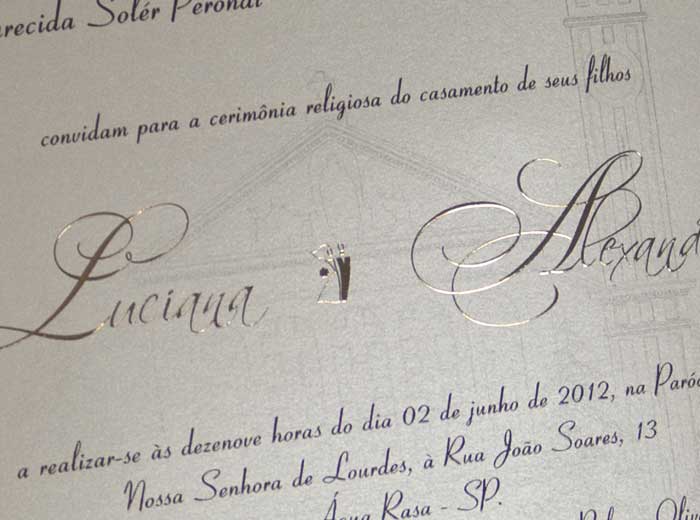 Solér Peronal
convidam para a cerimônia religiosa do casamento de seus filhos
Luciana Alexand
a realizar-se às dezenove horas do dia 02 de junho de 2012, na Paróq
Nossa Senhora de Lourdes, à Rua João Soares, 13
Água Rasa - SP.